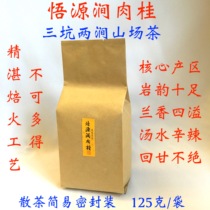 悟源涧肉桂
三坑两涧山场茶
精湛焙火工艺
不可多得
悟源涧肉桂
核心产区
岩韵十足
兰香四溢
汤水辛辣
回甘不绝
散茶简易密封装 125克/袋